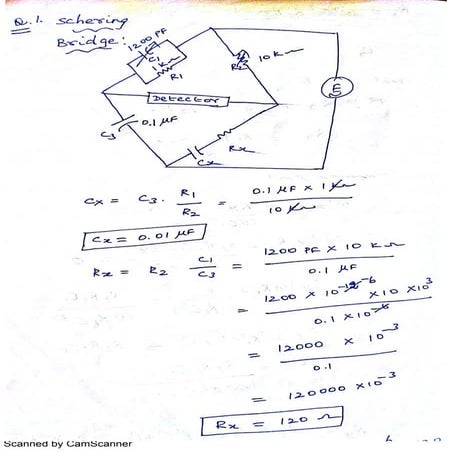 Q.1. Schering
Bridge:
1200 PF
C1
1 K
R1
10 K
R2
E
Detector
C3
0.1 µF
Rx
Cx
Cx = C3 . R1/R2 = 0.1 µF x 1 K/10 K
Cx = 0.01 µF
Rx = R2 C1/C3 = 1200 PF x 10 K Ω/0.1 µF
= 1200 x 10^-12 -6 x 10 x 10^3/0.1 x 10^-6
= 12000 x 10^-3/0.1
= 120000 x 10^-3
Rx = 120 Ω
Scanned by CamScanner